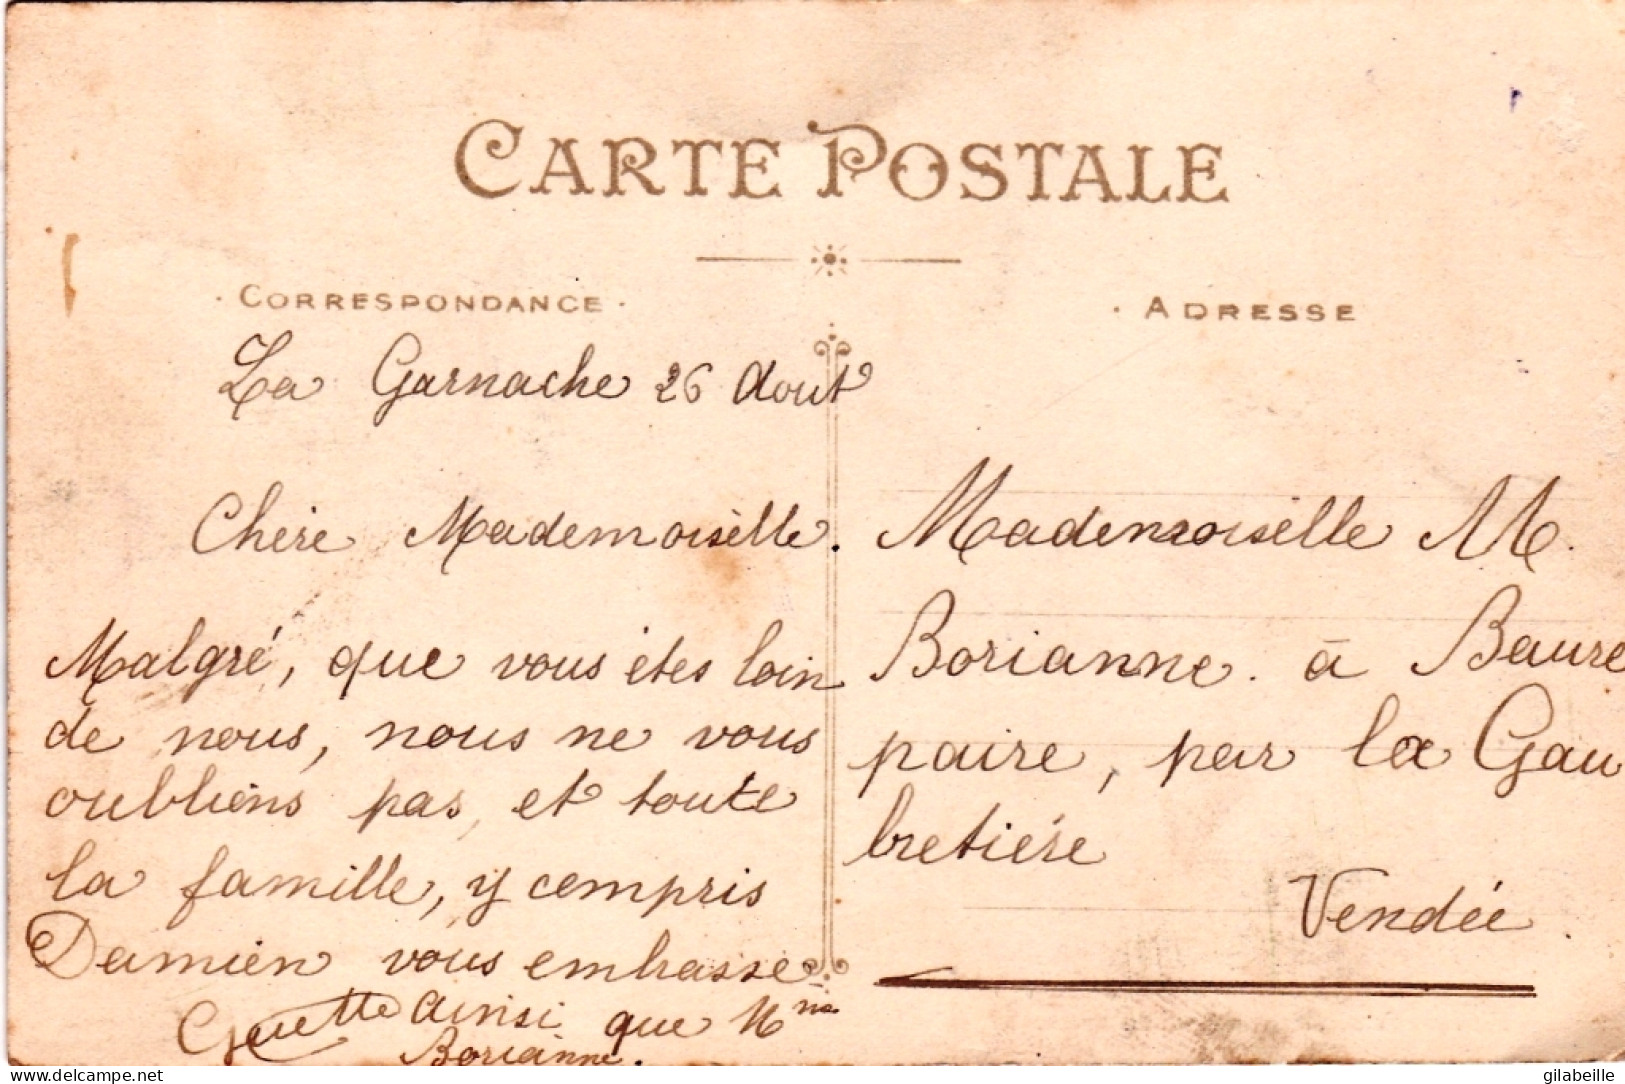 CARTE POSTALE
CORRESPONDANCE
ADRESSE
La Garnache 26 Aout
Chère Mademoisèlle.
Malgré, que vous étes loin
de nous, nous ne vous
oublions pas, et toute
la famille, y compris
Damien vous embrasse
ainsi que Mme
Borianne.
Mademoiselle M.
Borianne. à Beaure
paire, par la Gau
bretiére
Vendée.
www.delcampe.net
gilabeille